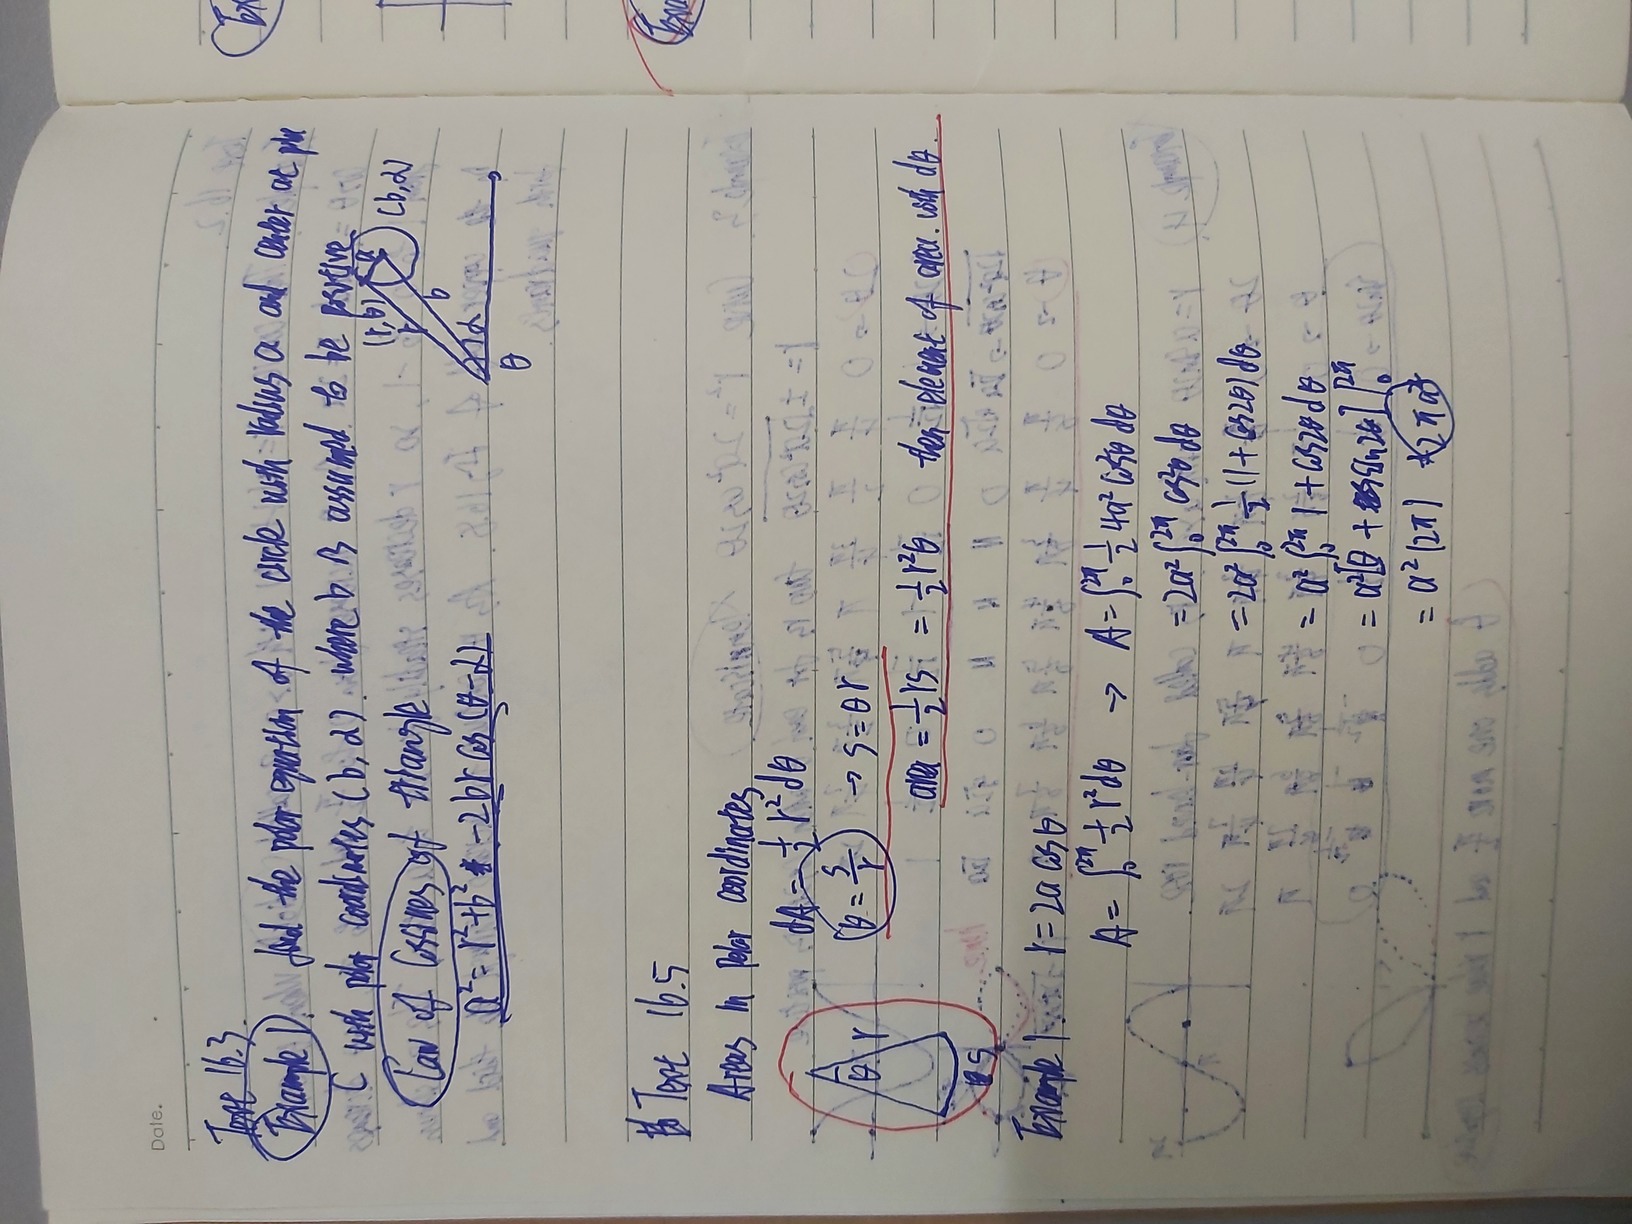 Date.
Text 16.3.
Example 1. find the polar equation of the circle with radius a and center at
C with polar coordinates (b, α). where b is assumed to be positive
(r, θ) a (b, α)
r
b
α
θ
Law of Cosines of triangle
a² = r² + b² - 2br cos(θ-α)
Text 16.5
Areas in polar coordinates
dA = 1/2 r² dθ
θ r
s
θ = s/r → s = θr
area = 1/2 rs = 1/2 r²θ then element of area. with dθ.
Example 1. r = 2a cosθ
A = ∫₀^2π 1/2 r² dθ → A = ∫₀^2π 1/2 4a² cos²θ dθ
= 2a² ∫₀^2π cos²θ dθ
= 2a² ∫₀^2π 1/2 (1 + cos2θ) dθ
= a² ∫₀^2π 1 + cos2θ dθ
= a² [θ + sin2θ] |₀^2π
= a² (2π) 2πa²